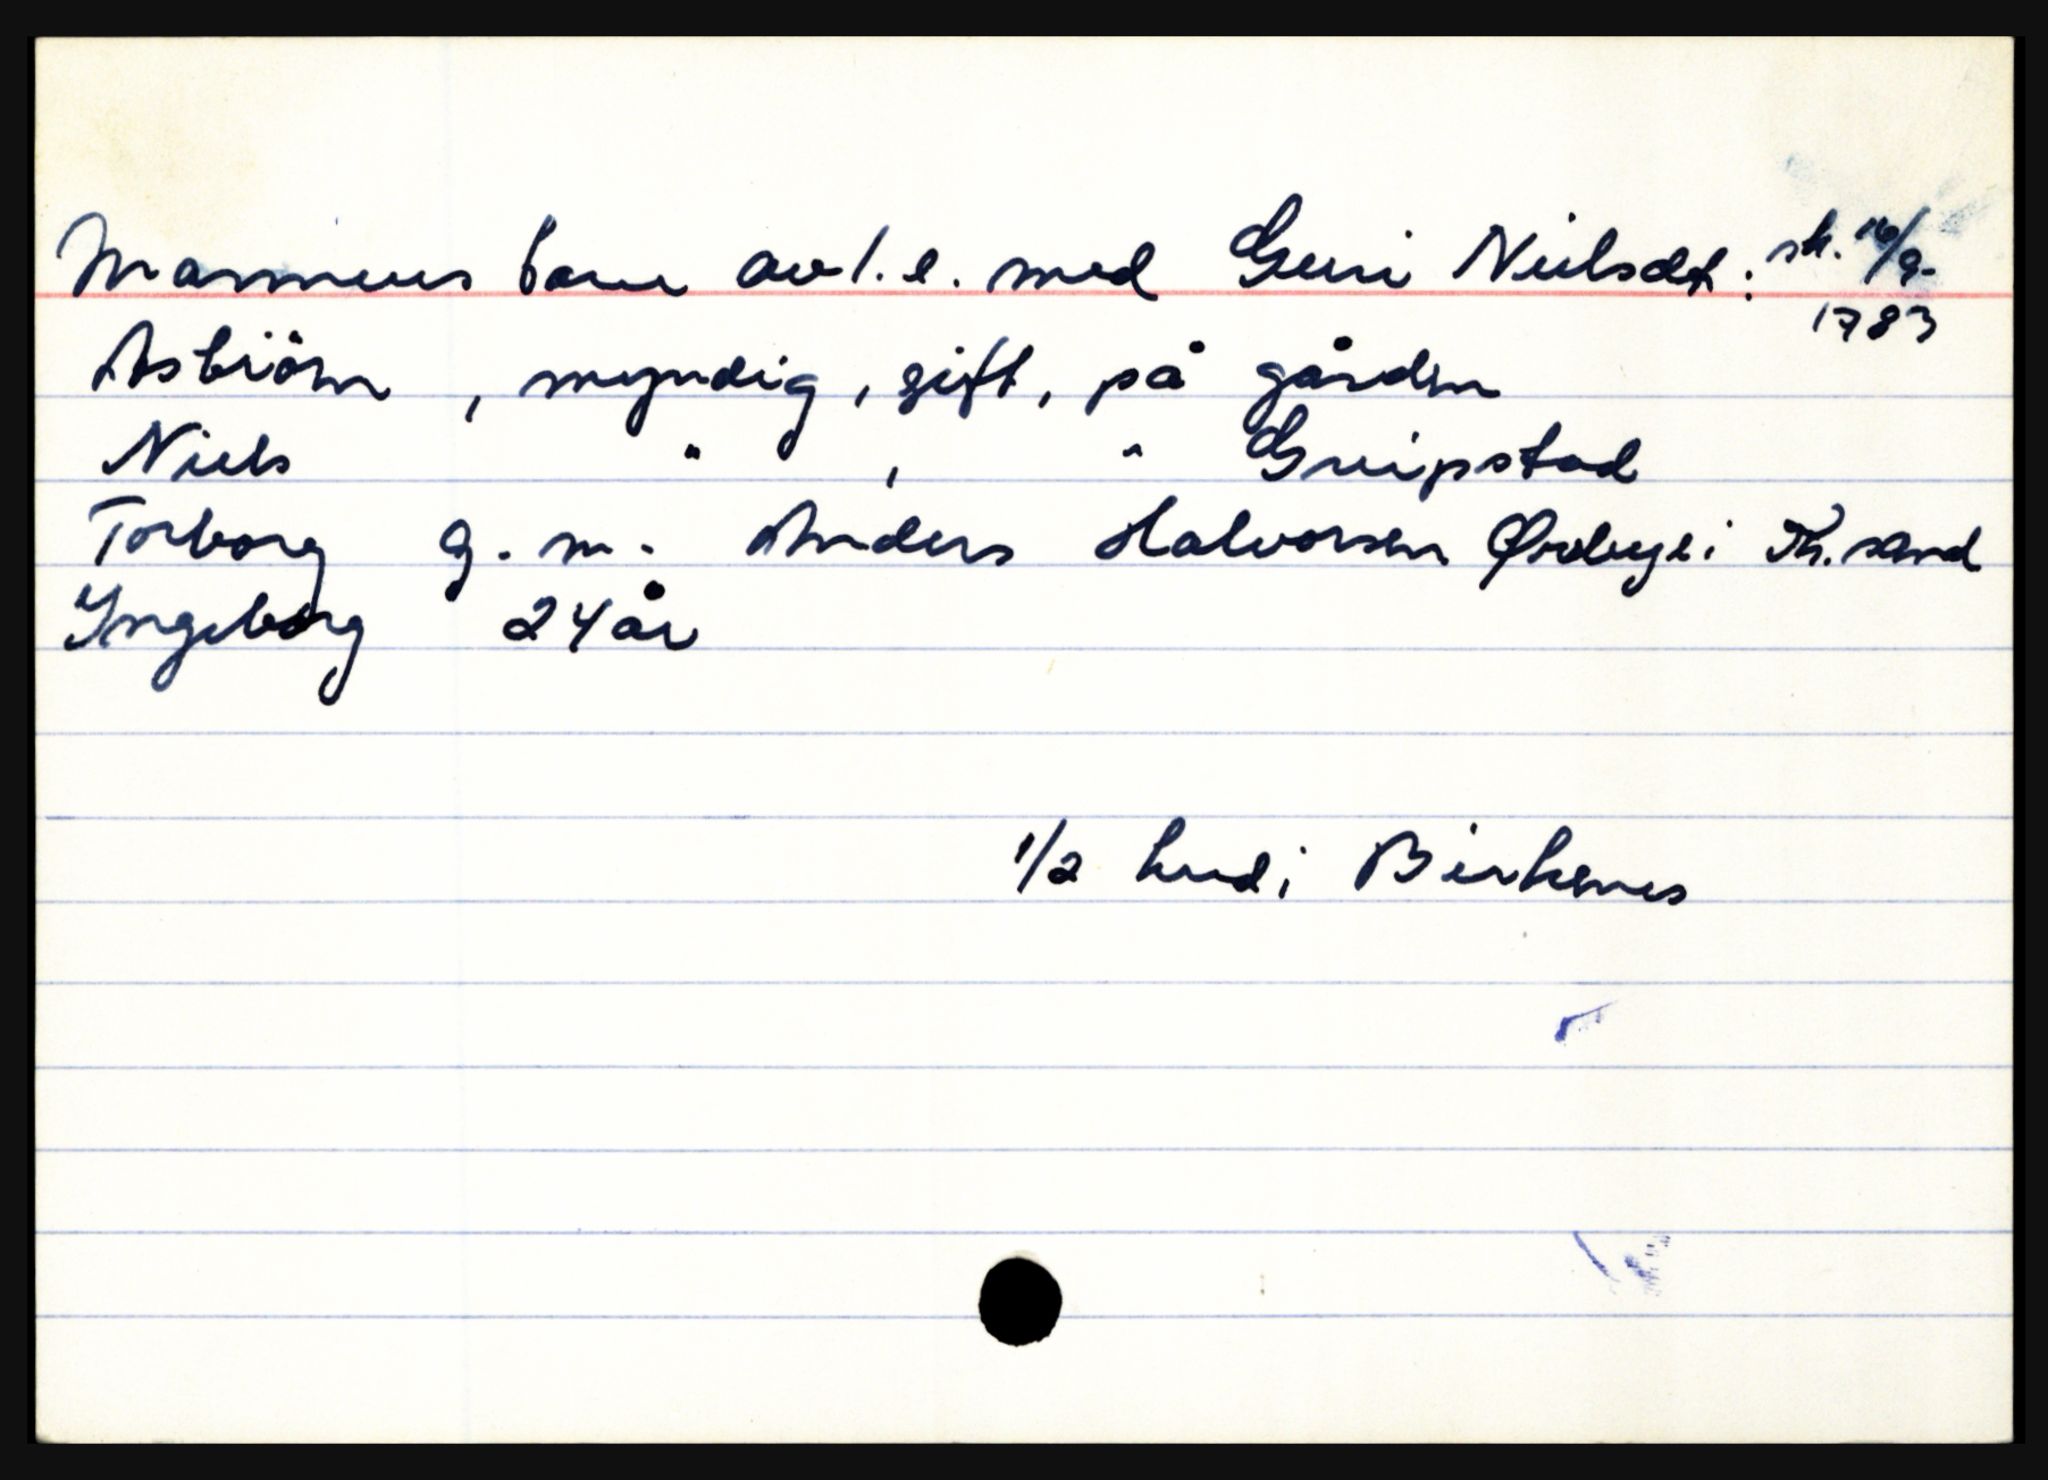 Mannens barn av 1. e. med Guri Nielsdt: sk. 16/9-
1783
Asbiörn , myndig, gift, på gården
Niels " , " Greipstad
Torborg g. m. Anders Halvorsen Øvbye i Kr.sand
Yngeborg 24 år
1/2 hud i Birkenes